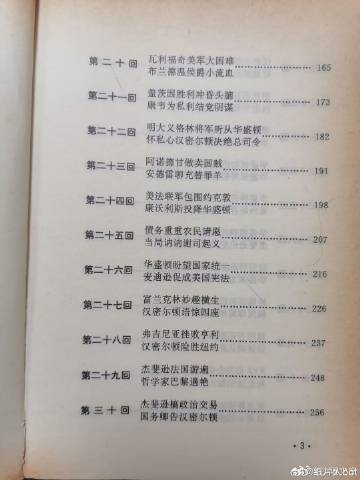 第二十回
瓦利福奇美军大困难
布兰德温侯爵小流血
165
第二十一回
盖茨因胜利冲昏头脑
康韦为私利结党阴谋
173
第二十二回
明大义格林将军听从华盛顿
怀私心汉密尔顿决绝总司令
182
第二十三回
阿诺德甘做卖国贼
安德雷聊充替罪羊
191
第二十四回
美法联军包围约克敦
康沃利斯投降华盛顿
198
第二十五回
债务重重农民请愿
当局讷讷谢司起义
207
第二十六回
华盛顿盼望国家统一
麦迪逊促成美国宪法
216
第二十七回
富兰克林妙趣横生
汉密尔顿语惊四座
226
第二十八回
弗吉尼亚挂败亨利
汉密尔顿险胜纽约
237
第二十九回
杰斐逊法国游遍
哲学家巴黎遇艳
248
第三十回
杰斐逊搞政治交易
国务卿告汉密尔顿
256
· 3 ·